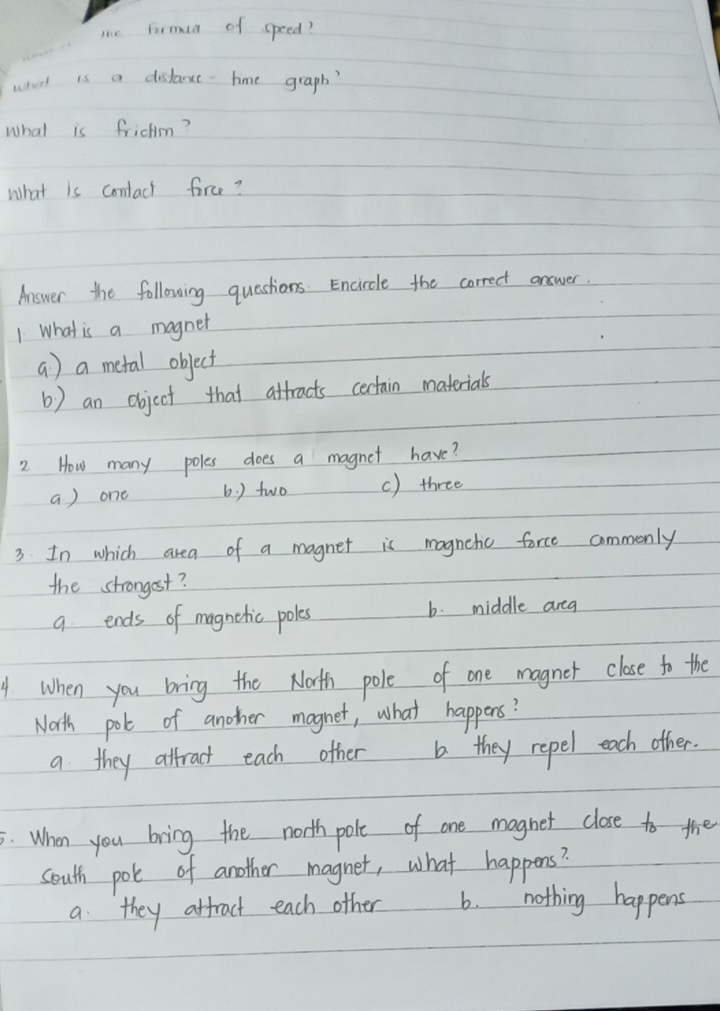 the formula of speed?
what is a distance - time graph?
What is friction?
What is contact force?
Answer the following questions. Encircle the correct answer.
1. What is a magnet
a.) a metal object
b.) an object that attracts certain materials
2 How many poles does a magnet have?
a.) one b.) two c.) three
3. In which area of a magnet is magnetic force commonly
the strongest?
a. ends of magnetic poles b. middle area
4 When you bring the North pole of one magnet close to the
North pole of another magnet, what happens?
a. they attract each other b. they repel each other.
5. When you bring the north pole of one magnet close to the
south pole of another magnet, what happens?
a. they attract each other b. nothing happens